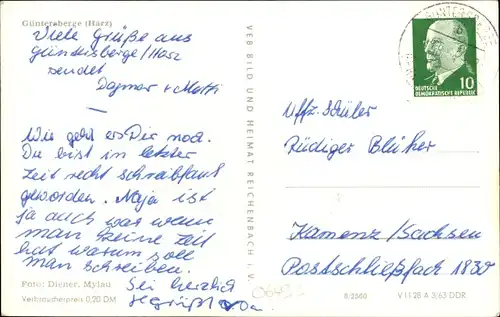 Güntersberge (Harz)
Viele Grüße aus
Güntersberge/Harz
sendet
Dagmar + Matti
Wie geht es Dir noch.
Du bist in letzter
Zeit recht schreibfaul
geworden. Naja ist
ja auch was wenn
man keine Zeit
hat warum soll
man schreiben.
Sei herzlich
gegrüßt v. Da.
Foto: Diener, Mylau
Verbraucherpreis 0,20 DM
VEB BILD UND HEIMAT REICHENBACH i. V.
10
DEUTSCHE
DEMOKRATISCHE REPUBLIK
Uffz. Schüler
Rüdiger Blüher
Kamenz/Sachsen
Postschließfach 1830
B 2560
V 11 28 A 3/63 DDR